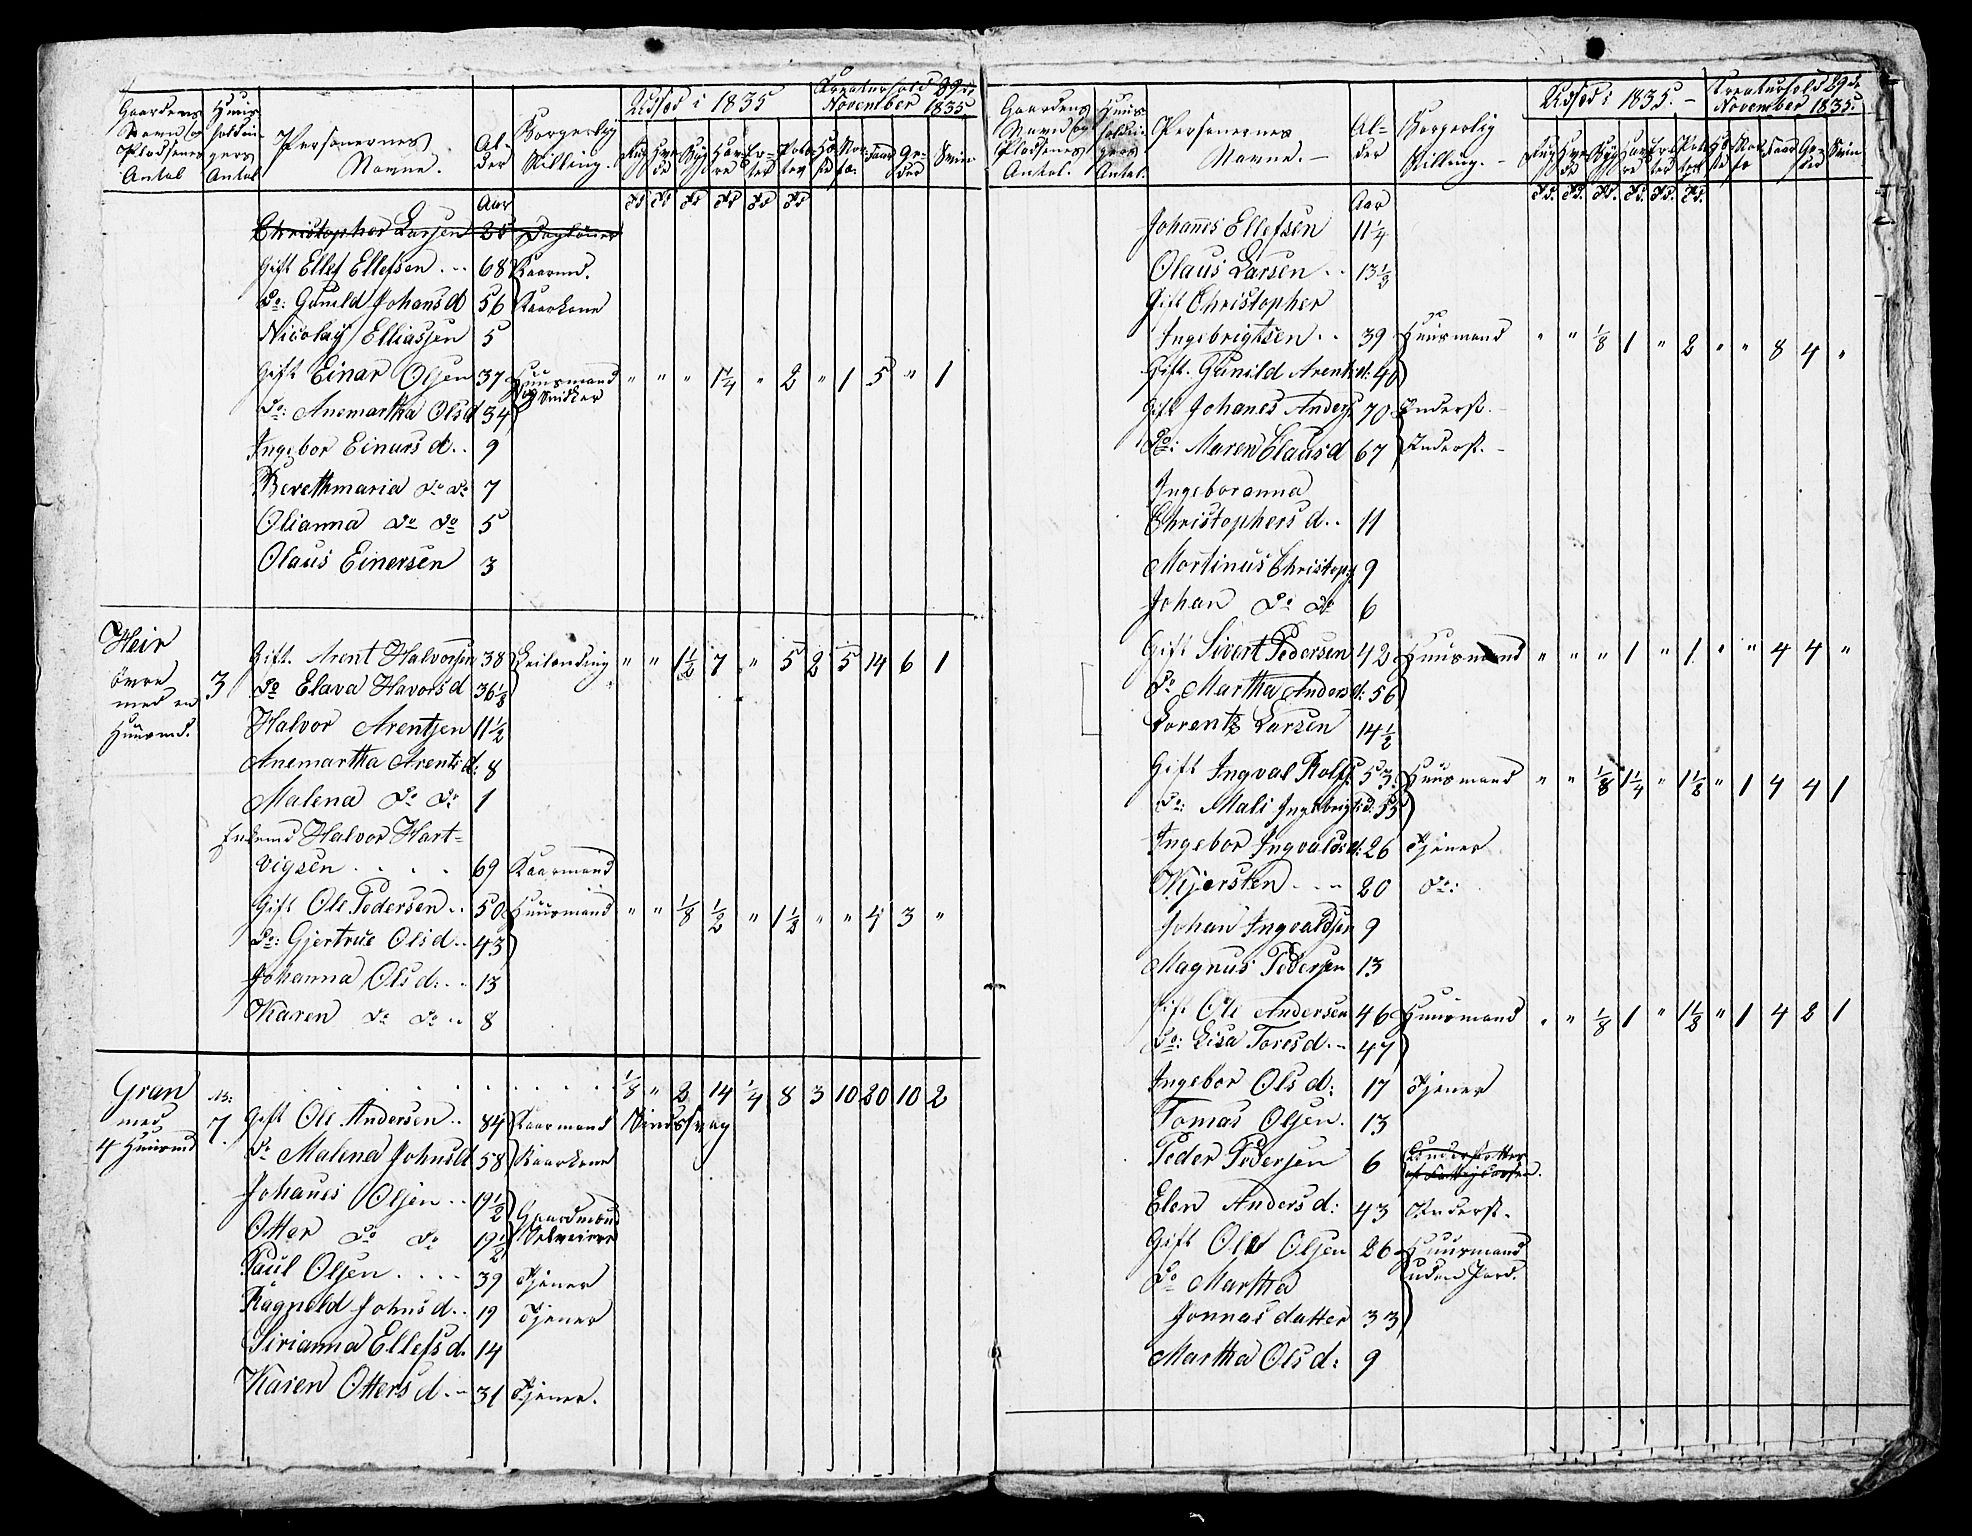 Gaardenes Navn og Pladsenes Antal
Huus-holdningers Antal
Personernes Navne.
Alder
Borgerlig Stilling.
Udsæd i 1835
Kreaturhold 29de November 1835
Rug Hvede Byg Havre Erter Poteter Heste Storfæ Faar Geder Sviin
Aar Td Td Td Td Td Td
Christopher Larsen 25 Daglöner
Gift Ellef Ellefsen .. 68 Kaarmd.
Do: Gunild Johansd 56 Kaarkone
Nicolay Elliassen 5
Gift Einar Olsen 37 Huusmand og Snidker " " " 1¼ " 2 " 1 5 " 1
Do: Anemartha Olsd 34
Ingebor Einarsd.. 9
Berethmaria do do 7
Olianna do do 5
Olaus Einersen 3
Heir övre med en Huusmd. 3
Gift. Arent Halvorsen 38 Leilænding " " 1½ 7 " 5 2 5 14 6 1
do Elava Havorsd 36½
Halvor Arentsen 11½
Anemartha Arentsd: 8
Malena do do 1
Enkemd Halvor Hart-
vigsen . . . . 69 Kaarmand
Gift Ole Pedersen .. 50 Huusmand " " ⅛ ½ " 1½ " " 4 3 "
Do: Gjertrue Olsd.. 43
Johanna Olsd: .. 13
Karen do do .. 8
Gran med 4 Huusmd 7. . . . . . . . . ⅛ " 2 14 ¼ 8 3 10 20 10 2
Gift Ole Andersen .. 84 Kaarmand Sindssvag
do Malena Johnsd 58 Kaarkone
Johanes Olsen .. 19½ Gaardmænd Selveiere
Otter do do 19½
Paul Olsen . . . . 39 Tjener
Ragneld Johnsd.. 19 Tjener
Sirianna Ellefsd. 14
Karen Ottersd. .. 31 Tjener.
Gaardens Navn og Pladsenes Antal.
Huus-holdningers Antal.
Personernes Navne. —
Al-der
Borgerlig Stilling. —
Udsæd i 1835. —
Kreaturhold 29de November 1835.
Rug Hvede Byg Havre Erter Poteter Heste Storfæ Faar Geder Sviin
Aar Td. Td. Td. Td. Td. Td.
Johanes Ellefsen 11¼
Olaus Larsen .. 13½
Gift Christopher
Ingebrigtsen .. 39 Huusmand " " ⅛ 1 " 2 " " 8 4 "
Gift. Gunild Arentsd: 40
Gift Johanes Anders. 70 Inderst. —
Do: Maren Clausd 67 Inderst. —
Ingeboranna
Christophersd.. 11
Mortinus Christoph. 9
Johan do do 6
Gift Sivert Pedersen 42 Huusmand " " " 1 " 1 " " 4 4 "
Do Martha Andersd: 56
Lorentz Larsen 14½
Gift Ingval Rolfs. 53 Huusmand " " ⅛ 1¼ " 1½ " 1 4 4 1
do: Mali Ingebrigtsd: 55
Ingebor Ingvaldsd: 26 Tjener
Kjersten .... 20 do:
Johan Ingvaldsen 9
Magnus Pedersen 13
Gift Ole Andersen 46 Huusmand " " ⅛ 1 " 1½ " 1 4 2 1
Do: Lisa Toresd. .. 47
Ingebor Olsd: 17 Tjener
Tomas Olsen. 13
Peder Pedersen 6
Elen Andersd: 43 Inderst.
Gift Ole Olsen 26 Huusmand uden Jord.
Do Martha
Jonnasdatter 33
Martha Olsd: 9